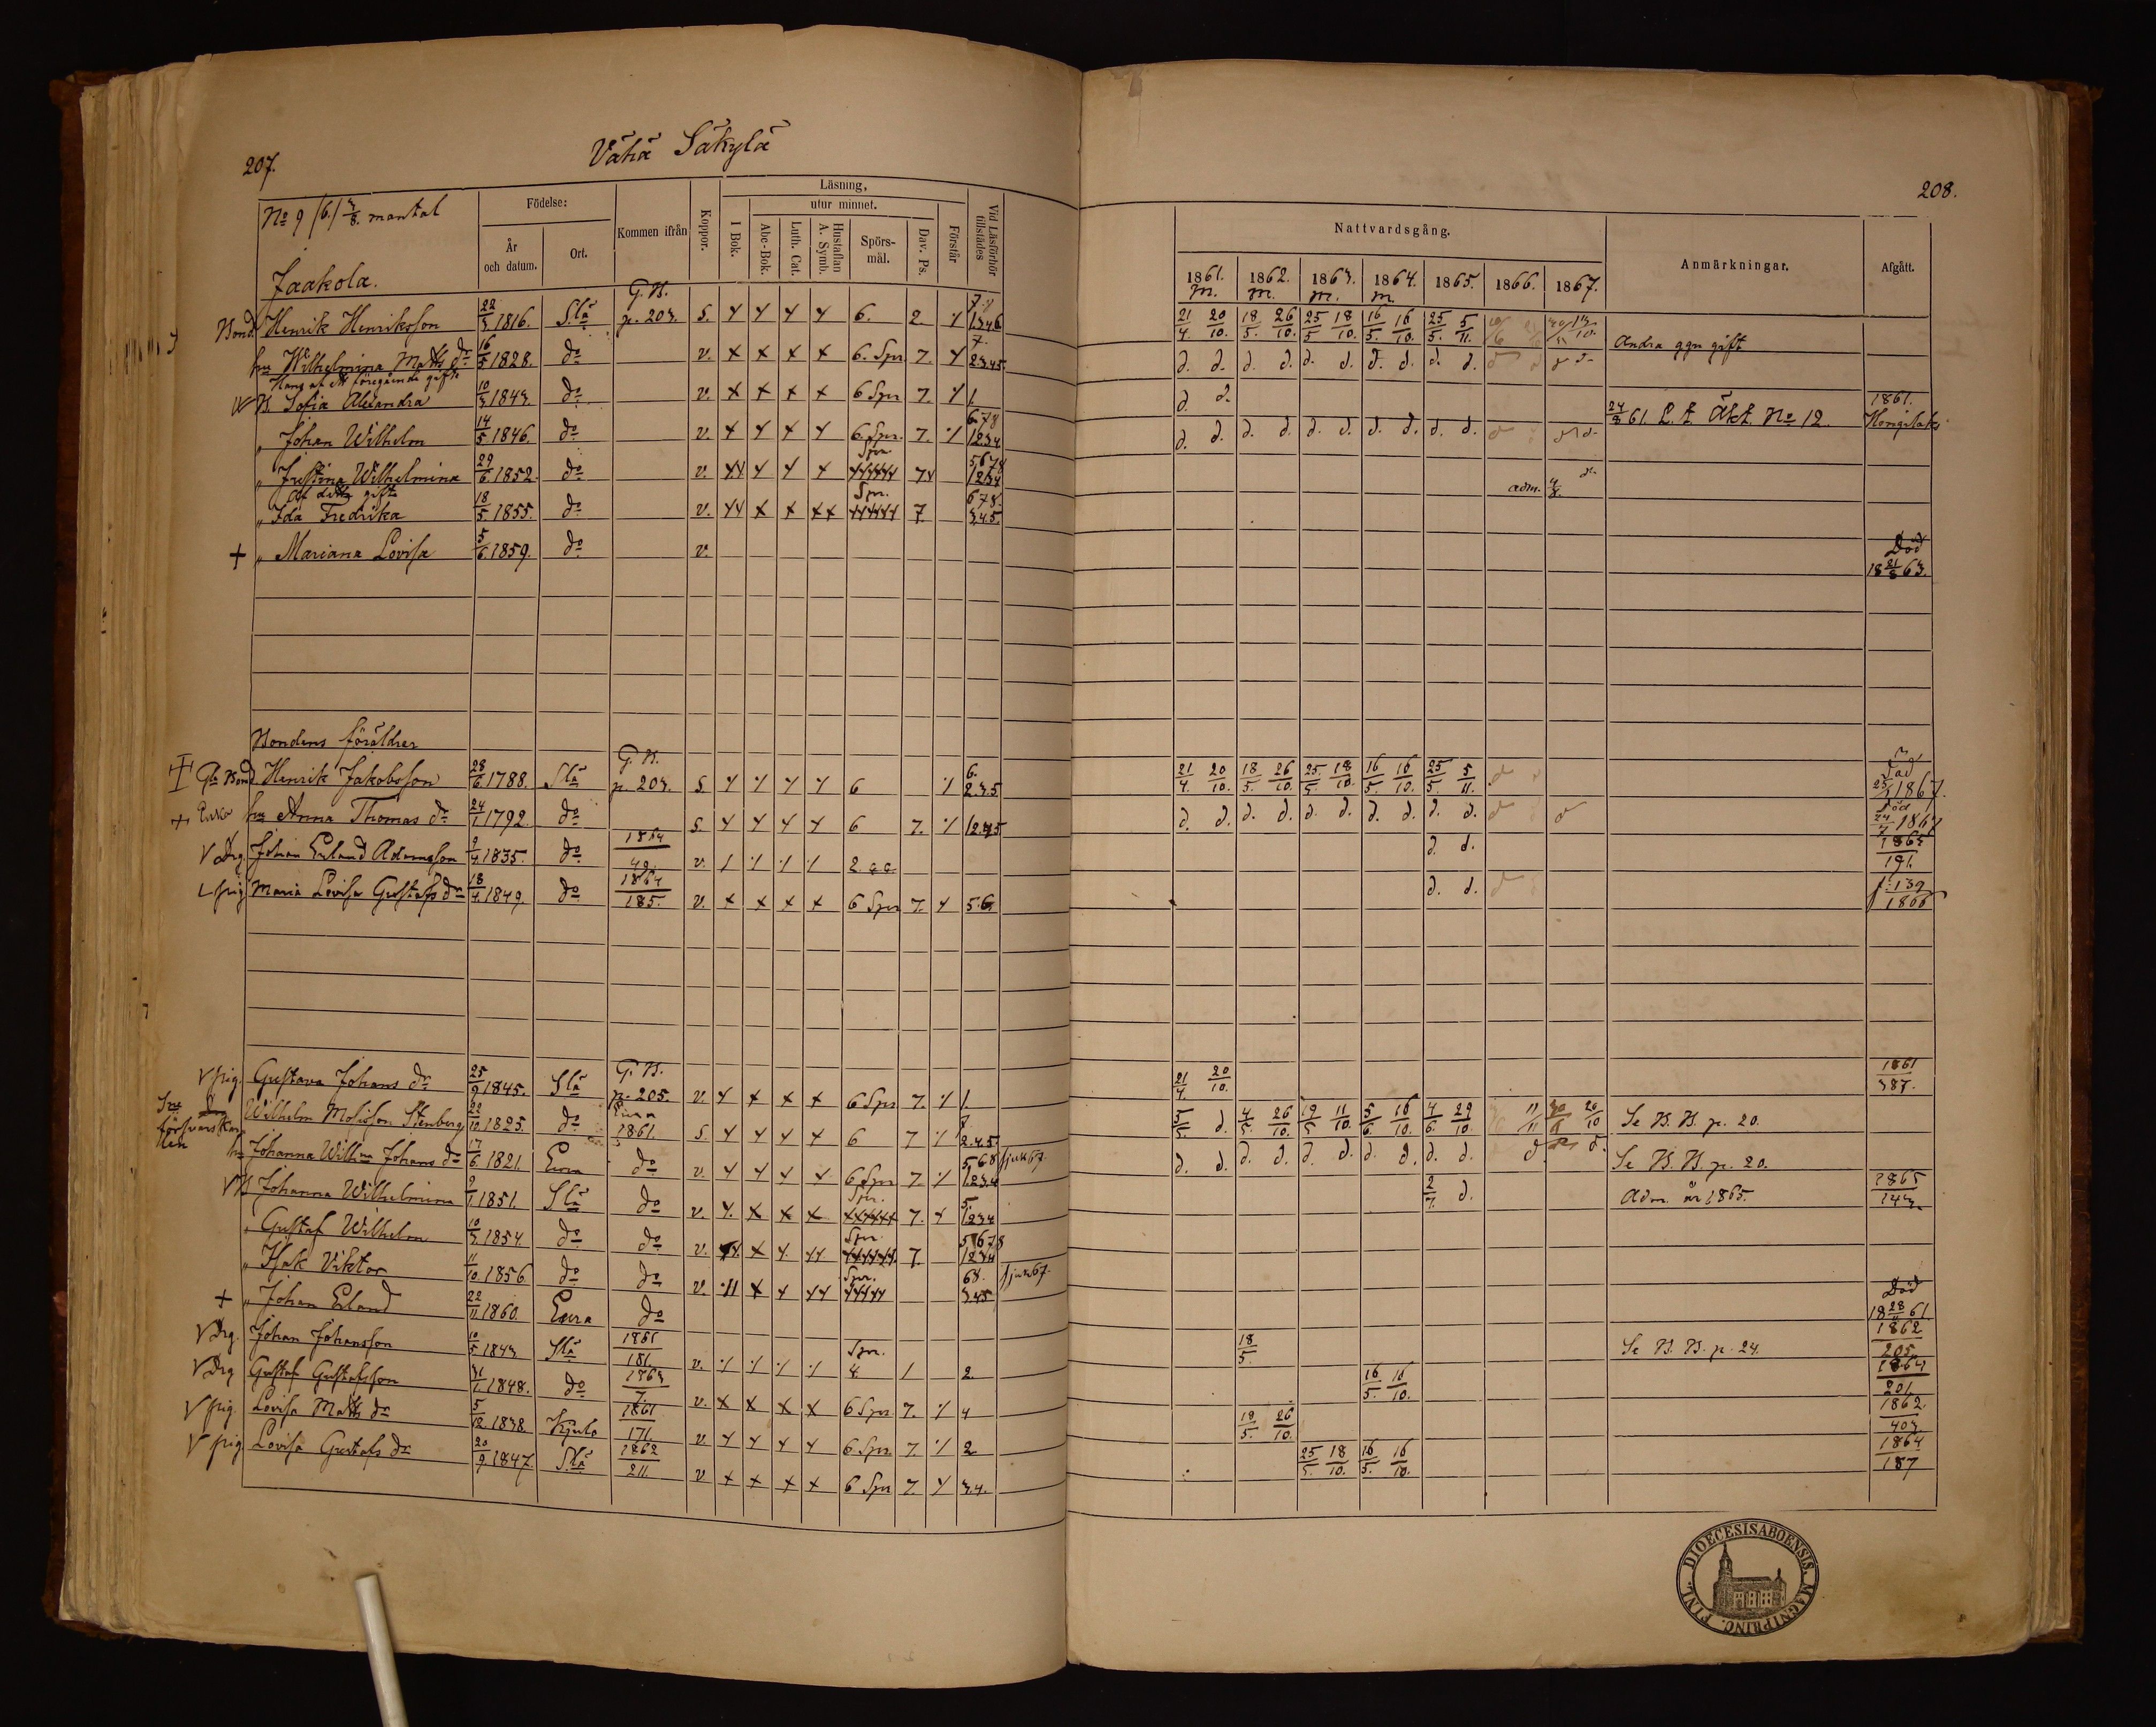 207.
Vähä Säkylä
208.
No 9 /6./ 3/8. mantal
Jaakola.
Födelse:
År och datum.
Ort.
Kommen ifrån
Koppor.
Läsning,
I Bok.
utur minnet.
Abc-Bok.
Luth. Cat.
Hustaflan A. Symb.
Spörs-mål.
Dav. Ps.
Förstår
Vid Läsförhör tillstädes
Nattvardsgång.
1861. 1862. 1863. 1864. 1865. 1866. 1867.
m. m. m. m.
Anmärkningar.
Afgått.
Bond. Henrik Henriksson 22/3 1816. Slä G.B. p. 203. s. 6. 2. 21/4. 20/10. 18/5. 26/10. 25/5 18/10. 16/5. 16/10. 25/5. 5/11. Andra ggn gift
hu Wilhelmina Matts dr 16/5 1828. do v. 6. Spr 7. 2.3.45. d. d. d. d. d. d. d. d. d. d.
B. Sofia Alexandra 10/3 1843. do v. 6 Spr 7. 1. d. d. 24/8 61. L. t. Äkt. No 12. 1861. Hongilaks
" Johan Wilhelm 14/5 1846. do v. 6. Spr. 7. 678 1234 d. d. d. d. d. d. d. d. d. d.
" Justina Wilhelmina 29/6 1852. do v. Spr. 5678 1234 adm.
Af detta gifte
" Ida Fredrika 18/5. 1855. do v. Spr. 7. 678. 345.
+ " Mariana Lovisa 5/6. 1859. do v. Död 18 21/8 63.
Bondens föräldrar
Gla Bond. Henrik Jakobsson 28/6. 1788. Slä G.B. p. 203. s. 6 6. 2.3.5 21/4. 20/10. 18/5. 26/10. 25/5. 18/10. 16/5. 16/10. 25/5 5/11. Död 25/1 1867.
+ Enka hu Anna Thomas dr 24/1 1792. do s. 6 7. d. d. d. d. d. d. d. d. d. d. Död 24/7 1867
V drg. Johan Erland Adamsson 9/4 1835. do 1864 49. v. 2. d. d. 1865 191.
pig Maria Lovisa Gustafs dr 18/4. 1849. do 1864 185. v. 6 Spr 7. 5.6. d. d. 139 1866
V pig. Gustava Johans dr 25/9 1845. Slä G.B. p. 205. v. 6 Spr 7. 1. 21/4 20/10. 1861 387.
Wilhelm Mosisson Stenberg 22/10. 1825. do Eura 1861. s. 6 7 2.4.5 5/5. d. 4/5. 26/10. 19/5 11/10. 5/6. 16/10. 4/6. 29/10. 11/11 20/10 Se B. B. p. 20.
hu Johanna Wilhna Johans dr 17/6. 1821. Eura do v. 6 Spr 7. 568 1234 sjuk 67. d. d. d. d. d. d. d. d. d. d. d. d. Se B. B. p. 20.
V B Johanna Wilhelmina 9/1 1851. Slä do v. Spr. 7. 5. 1234 2/7. d. Adm. år 1865. 1865 143
" Gustaf Wilhelm 10/3. 1854. do do v. Spr. 7. 5678 1234
" Isak Viktor 11/10. 1856 do do v. Spr. 68. 345 sjuk 67.
+ " Johan Erland 22/11 1860. Eura do Död 18 28/8 61.
V Drg. Johan Johansson 10/5 1843 Slä 1861 181. v. Spr. 4 1 2 18/5. Se B. B. p. 24. 1862 205
V Drg Gustaf Gustafsson 31/1. 1848. do 1863 7. v. 6 Spr 7. 4 16/5. 16/10. 1864 201.
V pig. Lovisa Matts dr 5/12 1838. Kjulo 1861 171. v 6. Spr 7. 2 18/5. 26/10. 1862. 403.
V pig Lovisa Gustafs dr 20/9. 1847. Slä 1862 211. v 6 Spr 7. 34. 25/5. 18/10. 16/5. 16/10. 1864 187
FINL. DIOECESIS ABOENSIS. MAGNI PRINC.